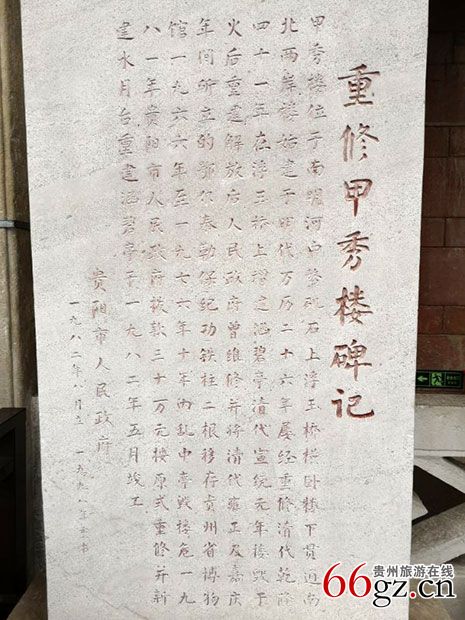 重修甲秀楼碑记
甲秀楼位于南明河中鳌矶石上浮玉桥横卧楼下贯通南
北两岸楼始建于明代万历二十六年屡经重修清代乾隆
四十一年在浮玉桥上增建涵碧亭清代宣统元年楼毁于
火后重建解放后人民政府曾维修并将清代雍正及嘉庆
年间所立的鄂尔泰勒保纪功铁柱二根移存贵州省博物
馆一九六六年至一九七六年十年内乱中亭毁楼危一九
八一年贵阳市人民政府拨款三十万元按原式重修并新
建水月台重建涵碧亭于一九八二年五月竣工
贵阳市人民政府
一九八二年八月立 一九九八年书
贵州旅游在线
66gz.cn